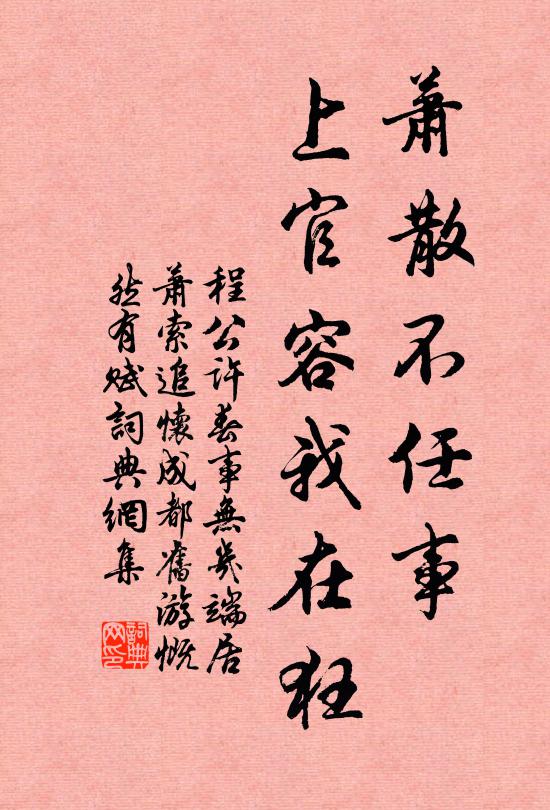 蕭散不任事
上官容我在狂
程公許春事無幾端居
蕭索追懷成都舊游慨
然有賦詞典網集
詞典网印